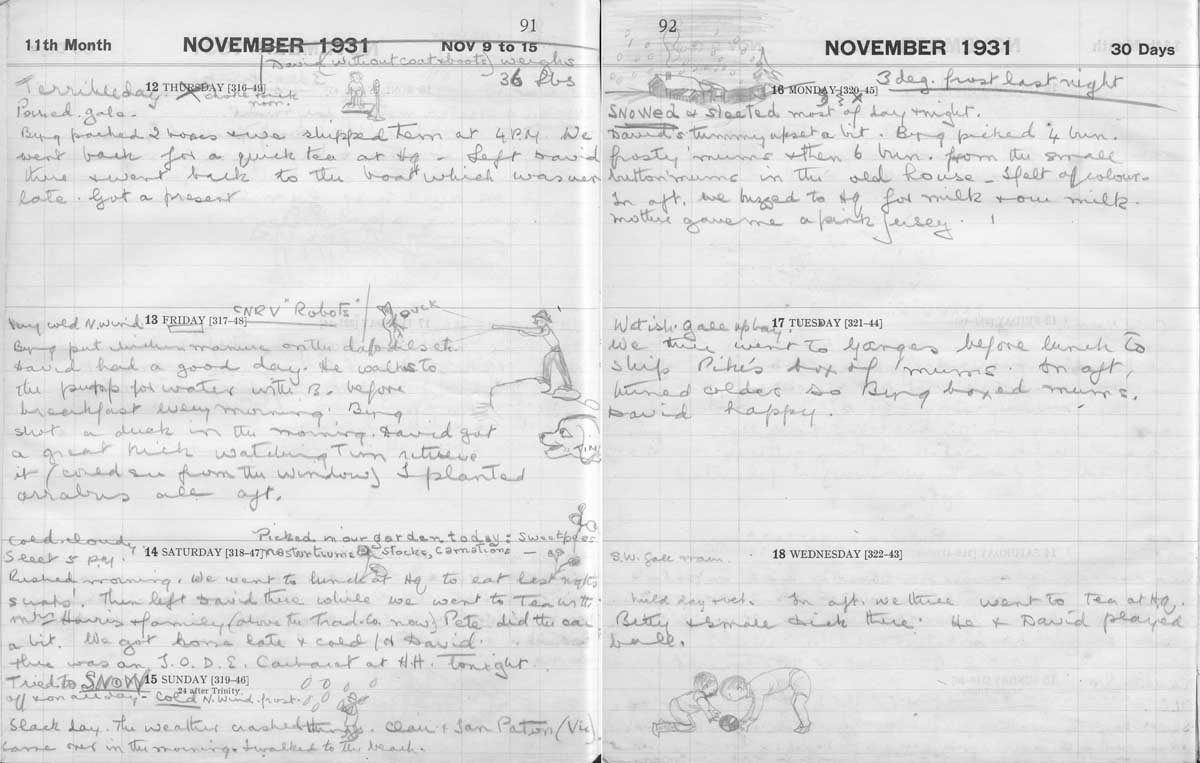 91
11th Month NOVEMBER 1931 NOV 9 to 15
David (without coat & boots) weighs
36 lbs
12 THURSDAY [316-49]
Terrible day
Poured. gale.
Byng packed 2 boxes & we shipped them at 4 P.M. We
went back for a quick tea at Hq - Left David
there & went back to the boat which was very
late. Got a present
13 FRIDAY [317-48]
SNRV "Robots"
DUCK
Very cold N. Wind
Byng put manure on the daffodils etc.
David had a good day. He walks to
the pump for water with B. before
breakfast every morning. Byng
shot a duck in the morning. David got
a great kick watching Tim retrieve
it (could see from the window) I planted
arrabus all aft.
TIM
Cold. cloudy
Sleet 5 PM
Picked in our garden today: Sweetpeas
14 SATURDAY [318-47] nasturtiums stocks, carnations
Rushed morning. We went to lunch at Hq to eat last nights
Then left David there while we went to Tea with
Mrs Harris & family (above the Trad. Co. now) Pete did the car
a bit. We got home late & cold
there was an I.O.D.E. Cabaret at H.H. Tonight.
Tried to SNOW 15 SUNDAY [319-46]
24 after Trinity
off & on all day - Cold N. Wind. frost.
Slack day. The weather crashed things. & Ian Paton (Vic)
came over in the morning. I walked to the beach.
92
NOVEMBER 1931 30 Days
3 deg. frost last night
16 MONDAY [320-45]
SNOWED & sleeted most of day & night.
David's tummy upset a bit. Byng picked 4 bun.
frosty 'mums & then 6 bun. from the small
button mums in the old house - 1 felt of colour -
In aft. we buzzed to Hq for milk & our milk.
Mother gave me a pink jersey.
17 TUESDAY [321-44]
Wetish. Gale
We three went to Ganges before lunch to
ship Pike's box of 'mums. In aft,
turned colder so Byng boxed mums.
David happy.
18 WEDNESDAY [322-43]
S.W. Gale rain.
Mild day & wet. In aft. we three went to tea at Hq.
Betty & small Dick there. He & David played
ball.